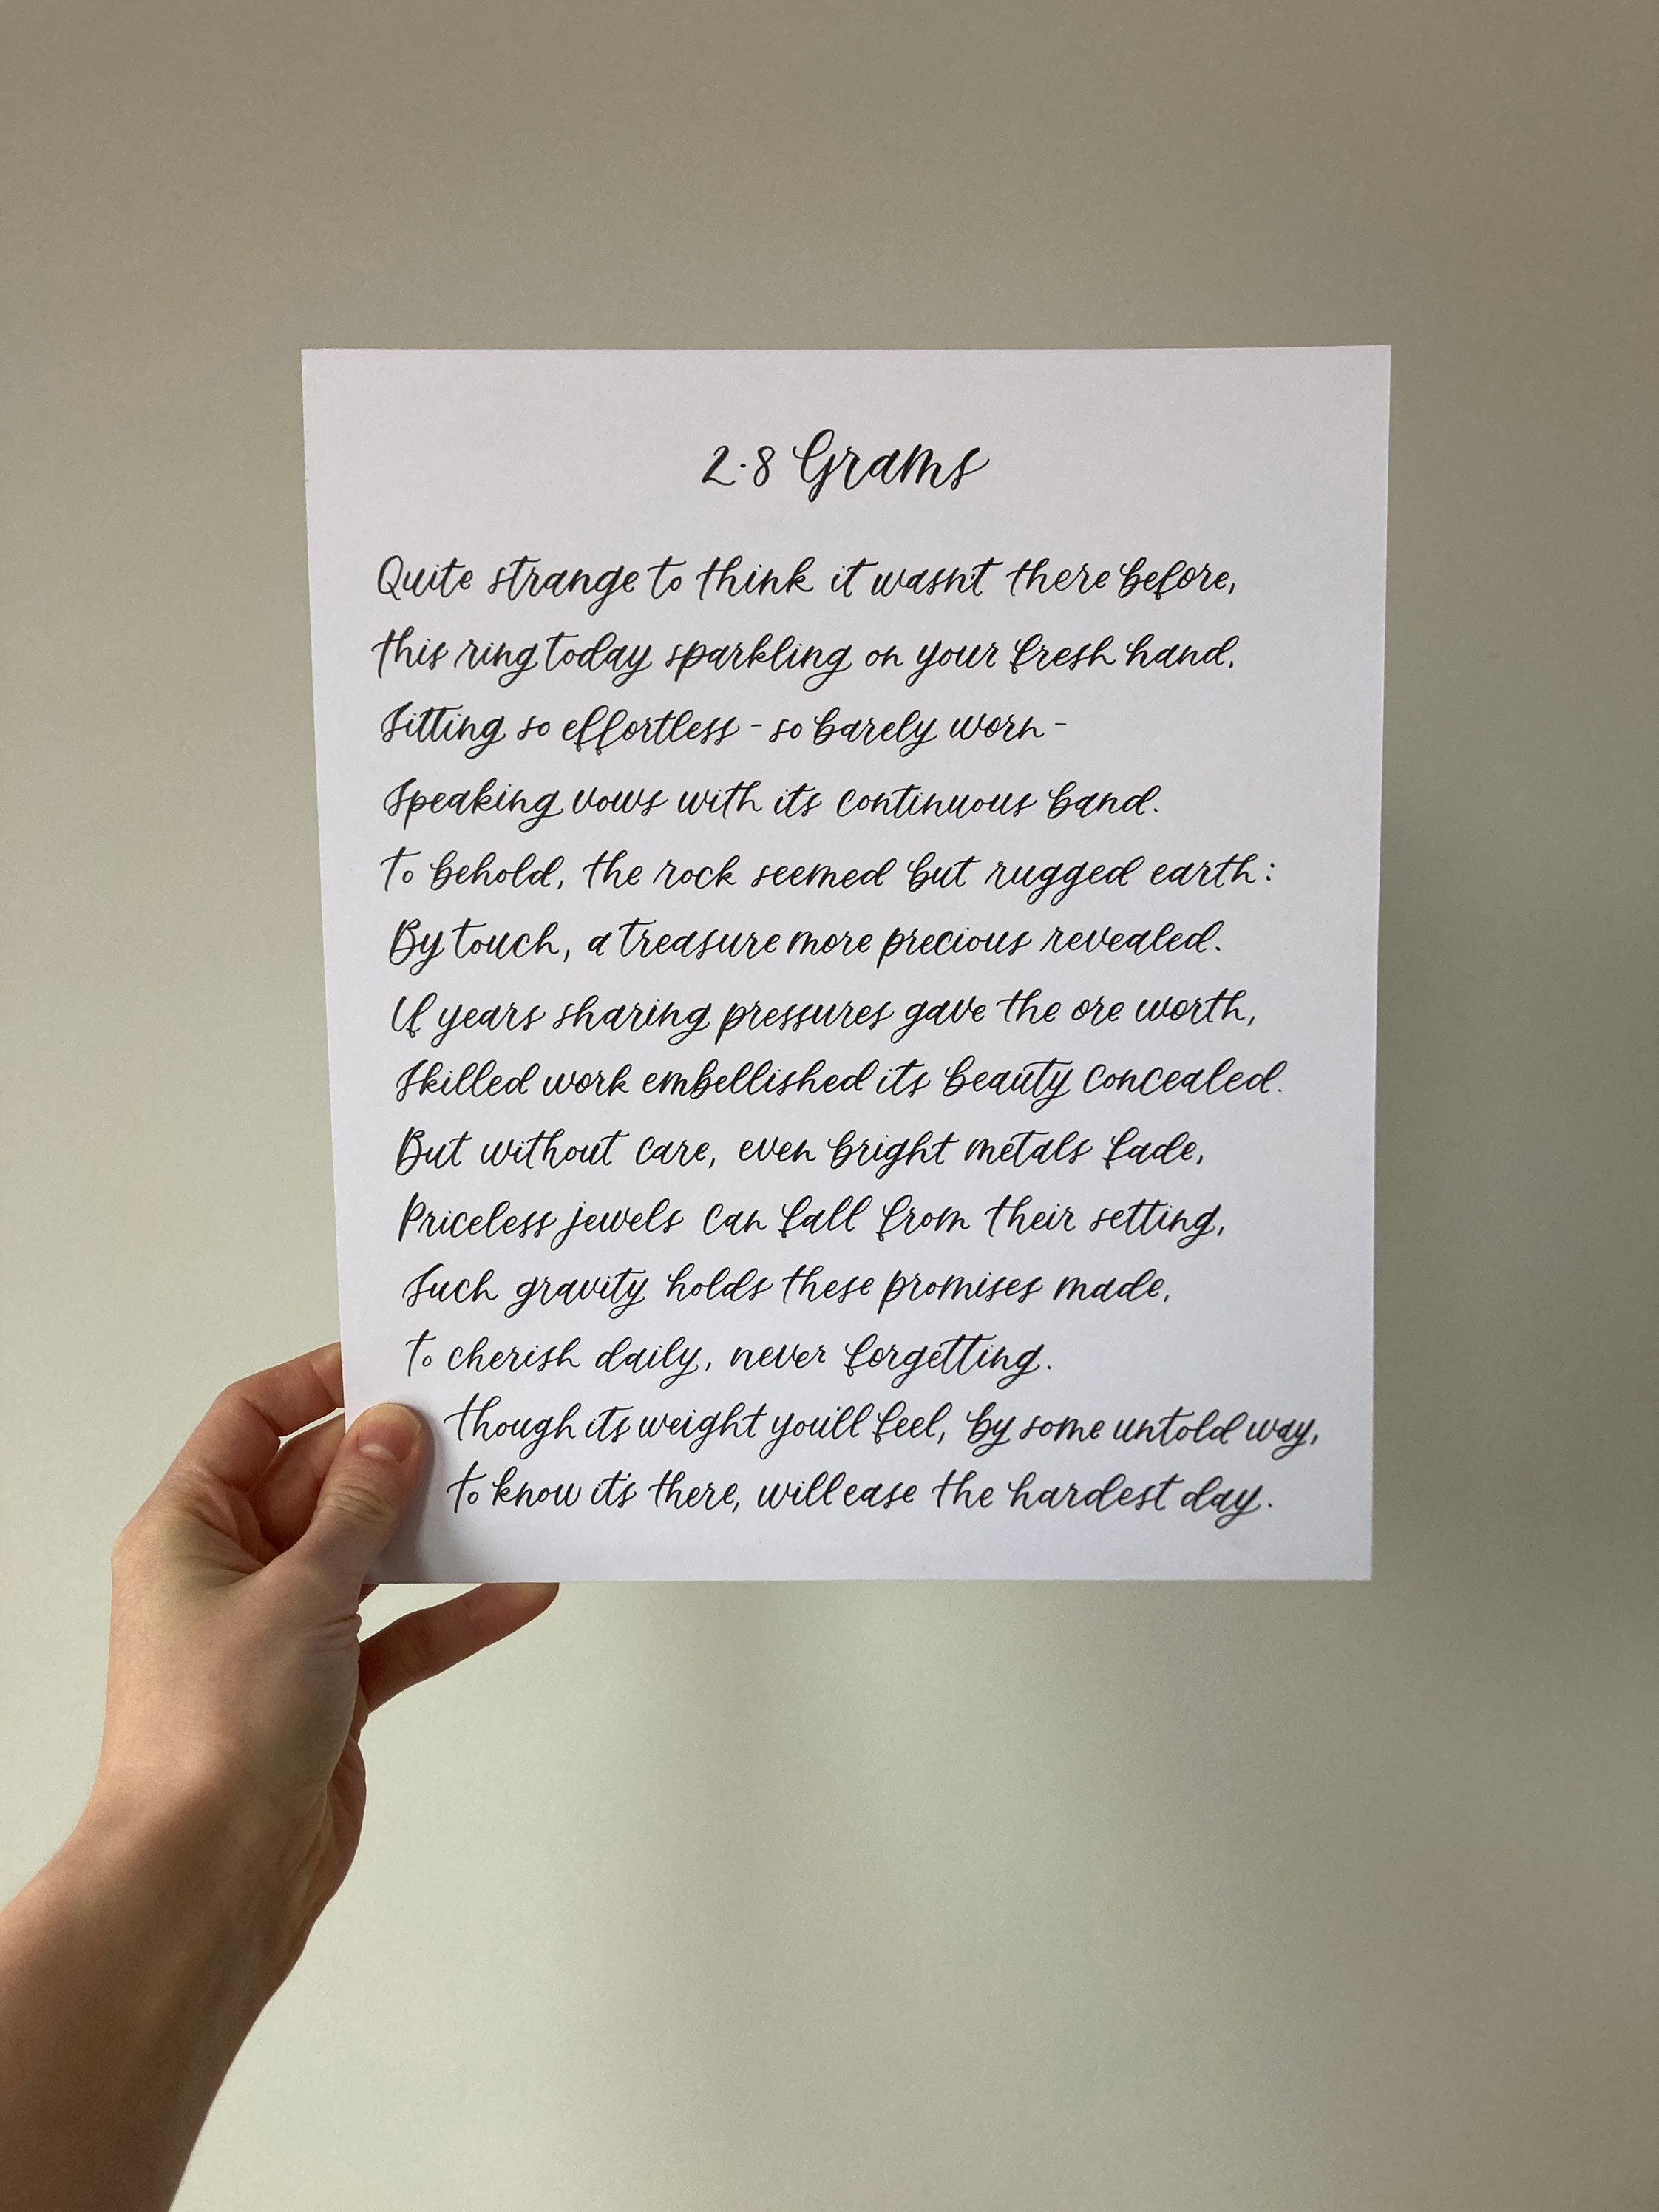 2.8 Grams
Quite strange to think it wasn't there before,
this ring today sparkling on your fresh hand,
Sitting so effortless - so barely worn -
Speaking vows with its continuous band.
To behold, the rock seemed but rugged earth:
By touch, a treasure more precious revealed.
If years sharing pressures gave the ore worth,
Skilled work embellished its beauty concealed.
But without care, even bright metals fade,
Priceless jewels can fall from their setting,
Such gravity holds these promises made,
To cherish daily, never forgetting.
Though its weight you'll feel, by some untold way,
To know it's there, will ease the hardest day.